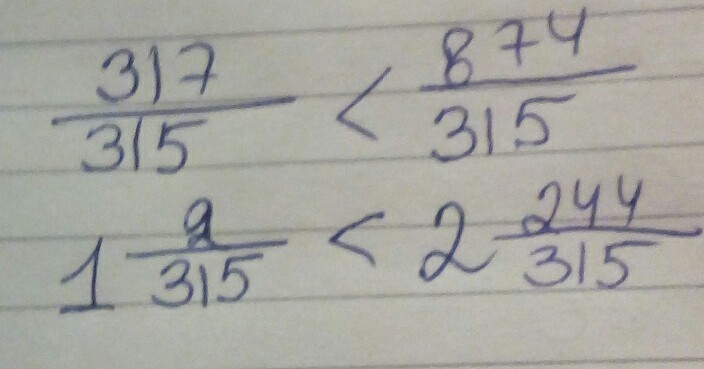 317/315 < 874/315
1 2/315 < 2 244/315